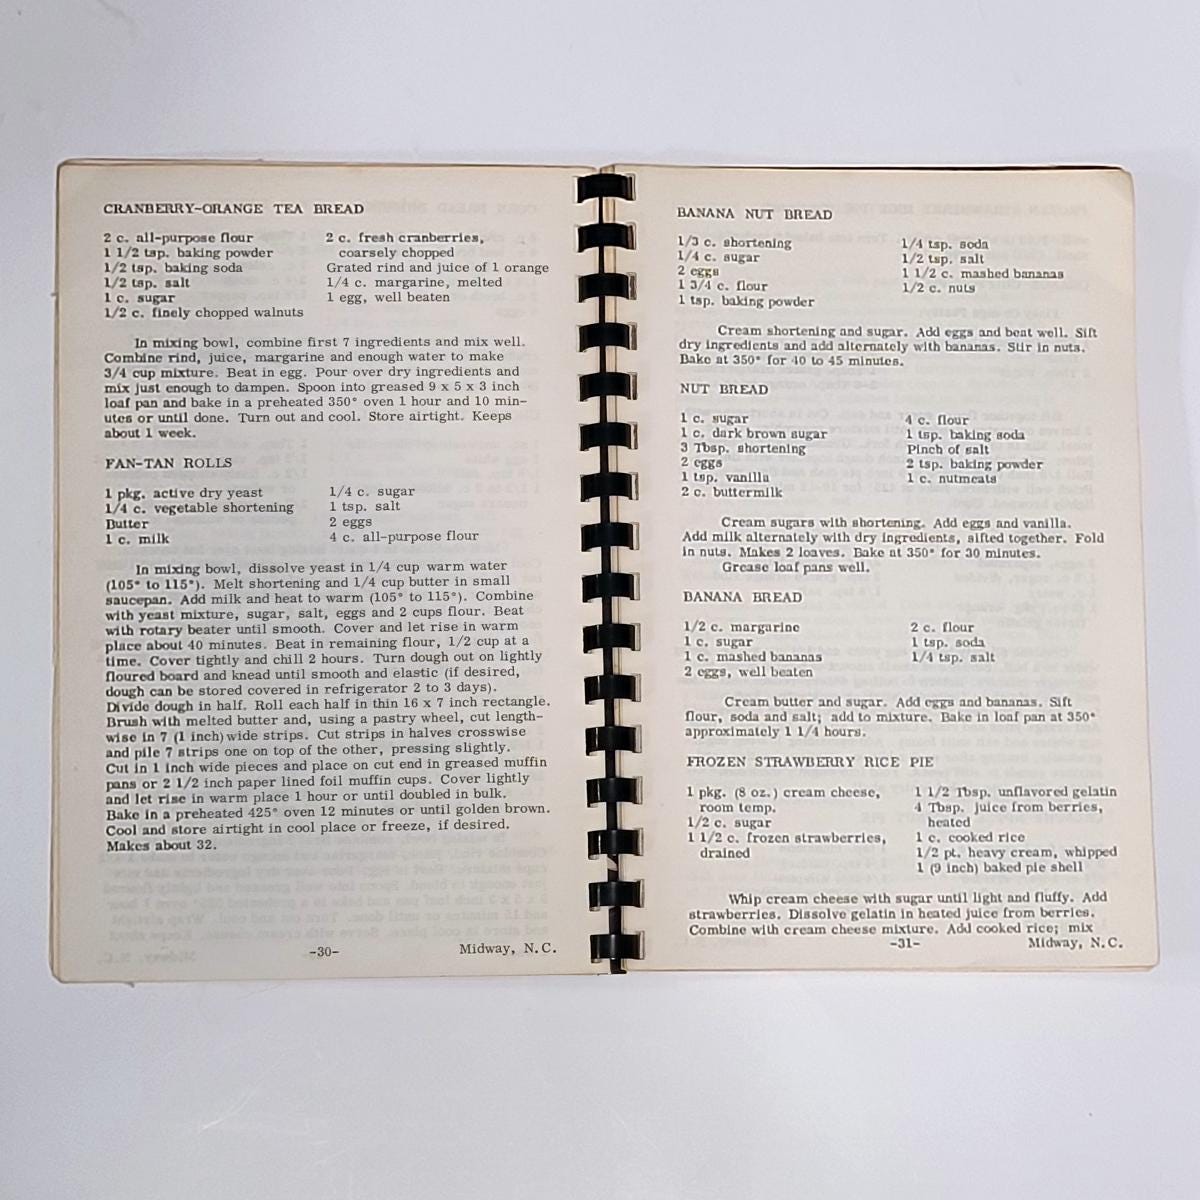 CRANBERRY-ORANGE TEA BREAD
2 c. all-purpose flour
1 1/2 tsp. baking powder
1/2 tsp. baking soda
1/2 tsp. salt
1 c. sugar
1/2 c. finely chopped walnuts
2 c. fresh cranberries,
coarsely chopped
Grated rind and juice of 1 orange
1/4 c. margarine, melted
1 egg, well beaten
In mixing bowl, combine first 7 ingredients and mix well.
Combine rind, juice, margarine and enough water to make
3/4 cup mixture. Beat in egg. Pour over dry ingredients and
mix just enough to dampen. Spoon into greased 9 x 5 x 3 inch
loaf pan and bake in a preheated 350° oven 1 hour and 10 min-
utes or until done. Turn out and cool. Store airtight. Keeps
about 1 week.
FAN-TAN ROLLS
1 pkg. active dry yeast
1/4 c. vegetable shortening
Butter
1 c. milk
1/4 c. sugar
1 tsp. salt
2 eggs
4 c. all-purpose flour
In mixing bowl, dissolve yeast in 1/4 cup warm water
(105° to 115°). Melt shortening and 1/4 cup butter in small
saucepan. Add milk and heat to warm (105° to 115°). Combine
with yeast mixture, sugar, salt, eggs and 2 cups flour. Beat
with rotary beater until smooth. Cover and let rise in warm
place about 40 minutes. Beat in remaining flour, 1/2 cup at a
time. Cover tightly and chill 2 hours. Turn dough out on lightly
floured board and knead until smooth and elastic (if desired,
dough can be stored covered in refrigerator 2 to 3 days).
Divide dough in half. Roll each half in thin 16 x 7 inch rectangle.
Brush with melted butter and, using a pastry wheel, cut length-
wise in 7 (1 inch) wide strips. Cut strips in halves crosswise
and pile 7 strips one on top of the other, pressing slightly.
Cut in 1 inch wide pieces and place on cut end in greased muffin
pans or 2 1/2 inch paper lined foil muffin cups. Cover lightly
and let rise in warm place 1 hour or until doubled in bulk.
Bake in a preheated 425° oven 12 minutes or until golden brown.
Cool and store airtight in cool place or freeze, if desired.
Makes about 32.
-30-
Midway, N.C.
BANANA NUT BREAD
1/3 c. shortening
1/4 c. sugar
2 eggs
1 3/4 c. flour
1 tsp. baking powder
1/4 tsp. soda
1/2 tsp. salt
1 1/2 c. mashed bananas
1/2 c. nuts
Cream shortening and sugar. Add eggs and beat well. Sift
dry ingredients and add alternately with bananas. Stir in nuts.
Bake at 350° for 40 to 45 minutes.
NUT BREAD
1 c. sugar
1 c. dark brown sugar
3 Tbsp. shortening
2 eggs
1 tsp. vanilla
2 c. buttermilk
4 c. flour
1 tsp. baking soda
Pinch of salt
2 tsp. baking powder
1 c. nutmeats
Cream sugars with shortening. Add eggs and vanilla.
Add milk alternately with dry ingredients, sifted together. Fold
in nuts. Makes 2 loaves. Bake at 350° for 30 minutes.
Grease loaf pans well.
BANANA BREAD
1/2 c. margarine
1 c. sugar
1 c. mashed bananas
2 eggs, well beaten
2 c. flour
1 tsp. soda
1/4 tsp. salt
Cream butter and sugar. Add eggs and bananas. Sift
flour, soda and salt; add to mixture. Bake in loaf pan at 350°
approximately 1 1/4 hours.
FROZEN STRAWBERRY RICE PIE
1 pkg. (8 oz.) cream cheese,
room temp.
1/2 c. sugar
1 1/2 c. frozen strawberries,
drained
1 1/2 Tbsp. unflavored gelatin
4 Tbsp. juice from berries,
heated
1 c. cooked rice
1/2 pt. heavy cream, whipped
1 (9 inch) baked pie shell
Whip cream cheese with sugar until light and fluffy. Add
strawberries. Dissolve gelatin in heated juice from berries.
Combine with cream cheese mixture. Add cooked rice; mix
-31-
Midway, N.C.